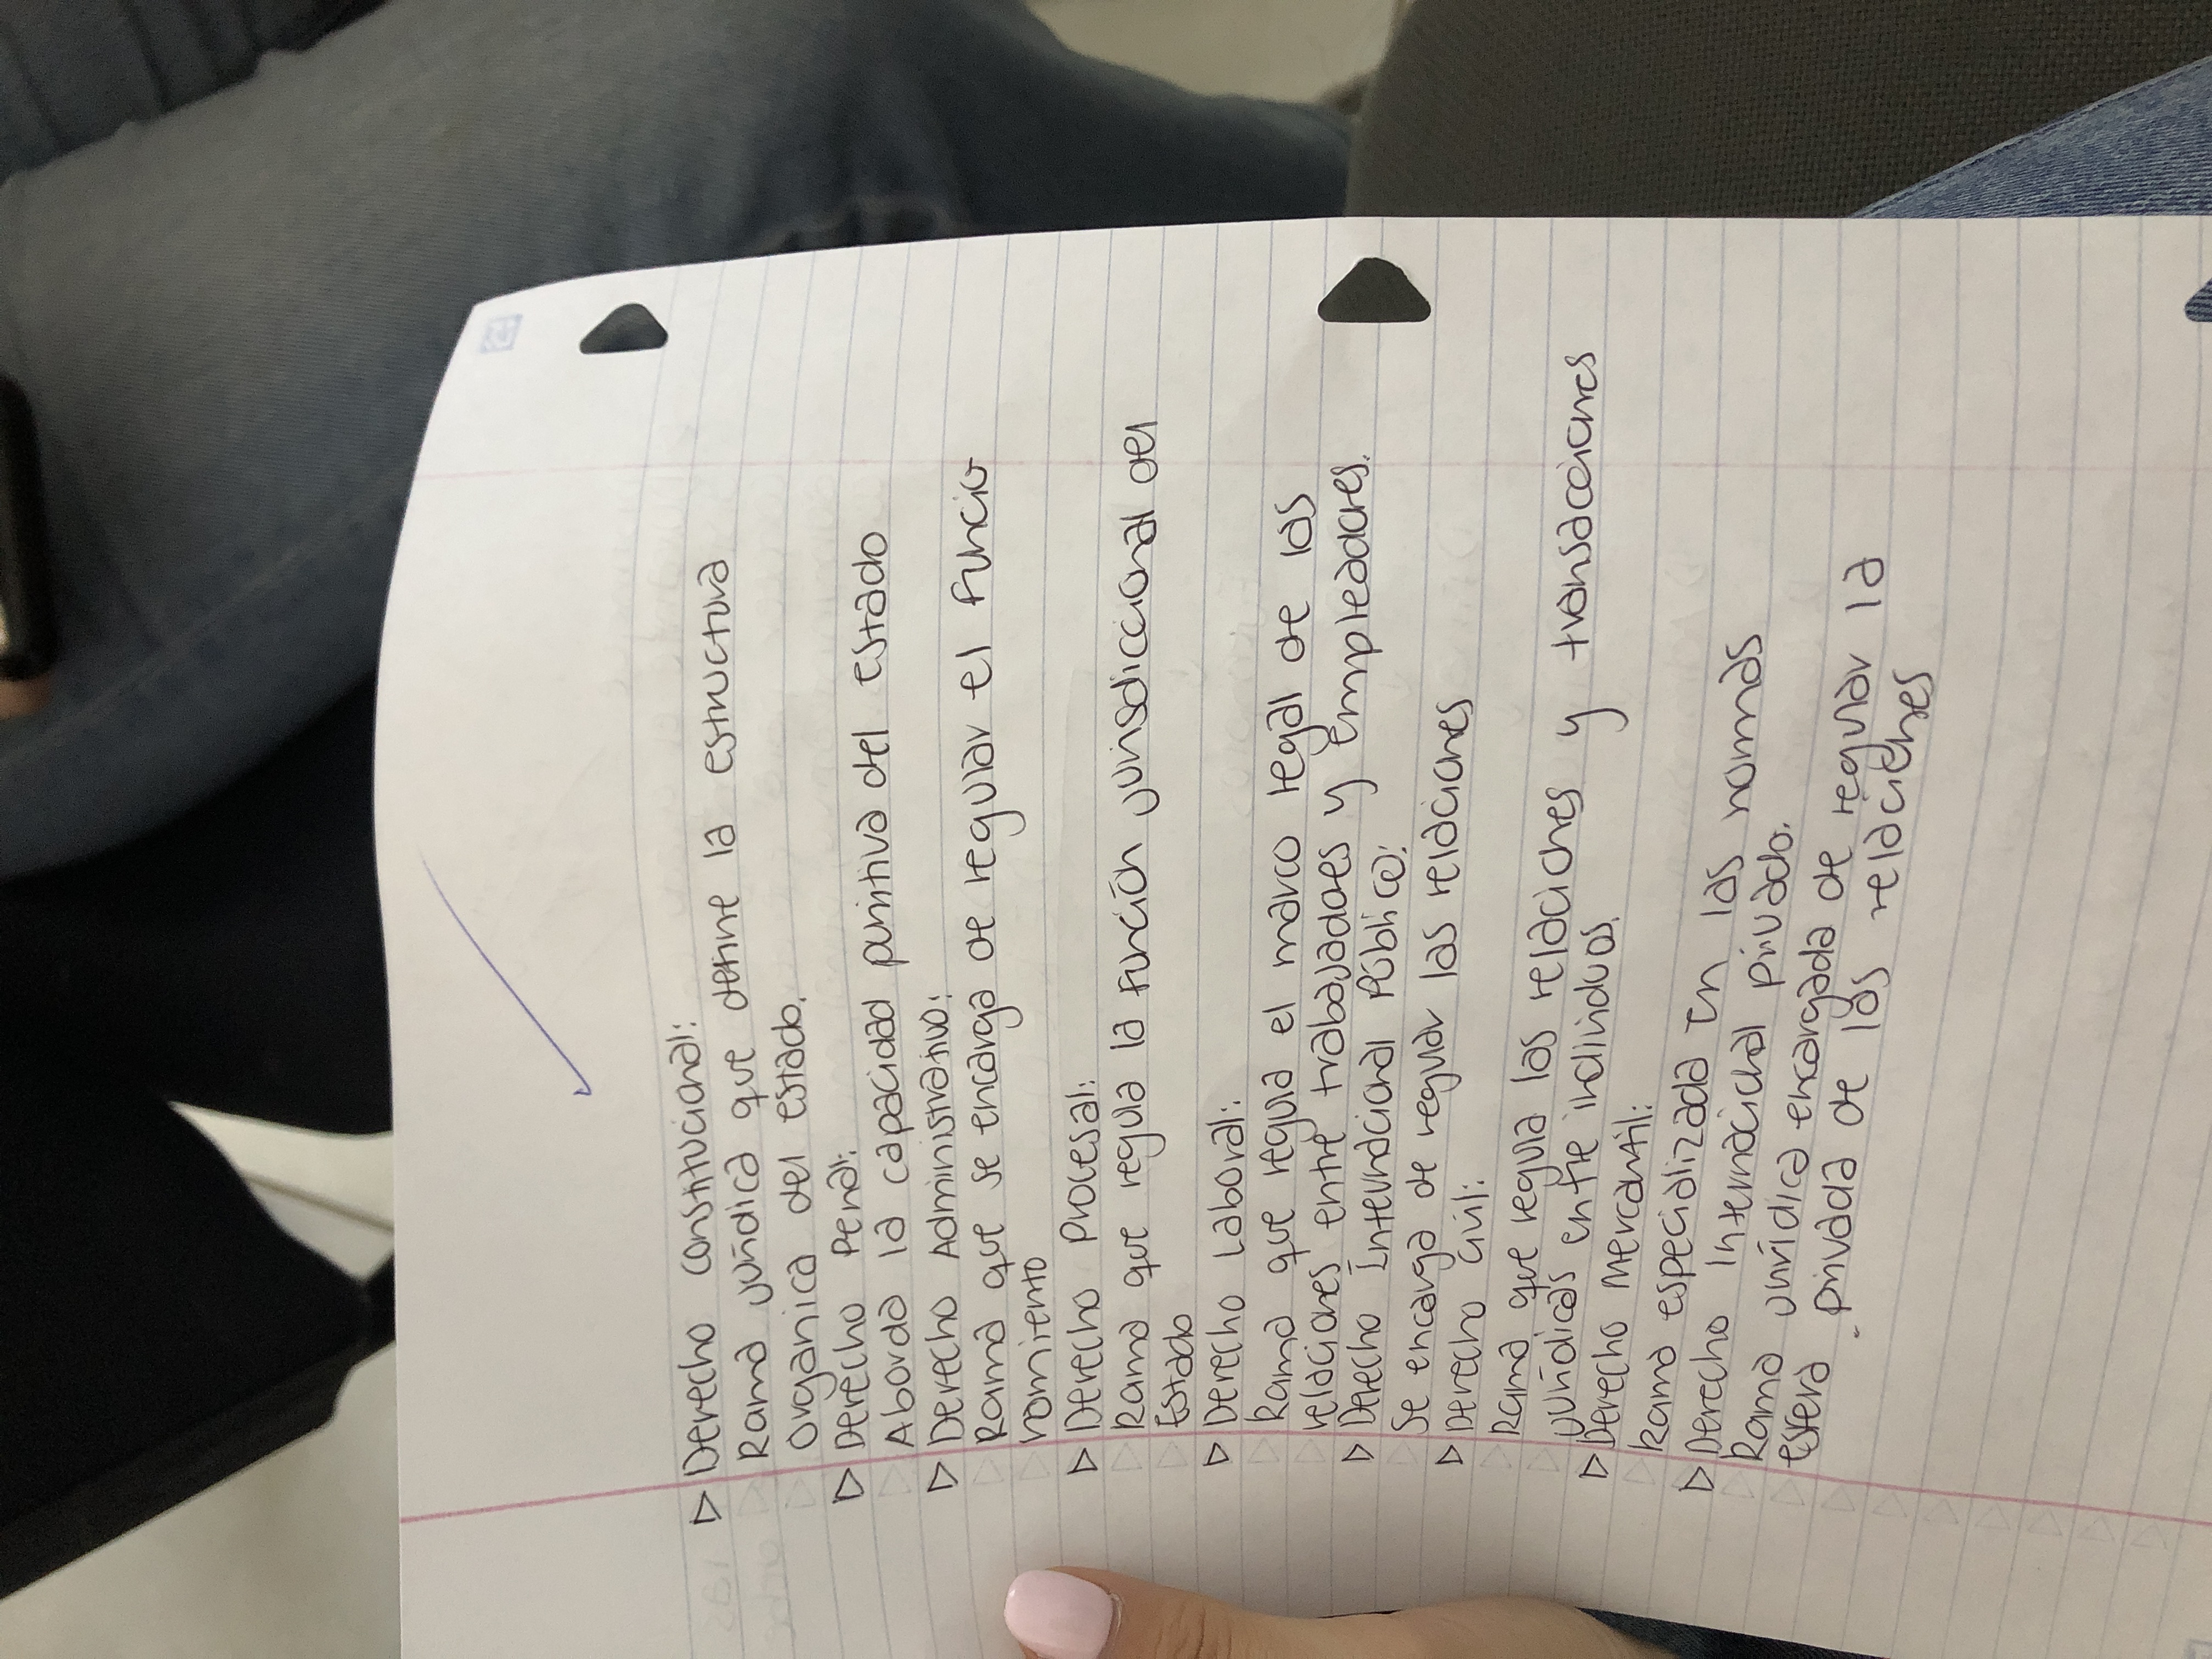 ▷ Derecho constitucional:
Rama jurídica que define la estructura
Organica del estado.
▷ Derecho Penal:
Aborda la capacidad punitiva del estado
▷ Derecho Administrativo:
Rama que se encarga de regular el funcio
namiento
▷ Derecho Procesal:
Rama que regula la función jurisdiccional del
Estado
▷ Derecho Laboral:
Rama que regula el marco legal de las
relaciones entre trabajadores y Empleadores.
▷ Derecho Internacional Público:
Se encarga de regular las relaciones
▷ Derecho civil:
Rama que regula las relaciones y transacciones
jurídicas entre individuos.
▷ Derecho Mercantil:
Rama especializada en las normas
▷ Derecho Internacional privado.
Rama jurídica encargada de regular la
esfera privada de las relaciones